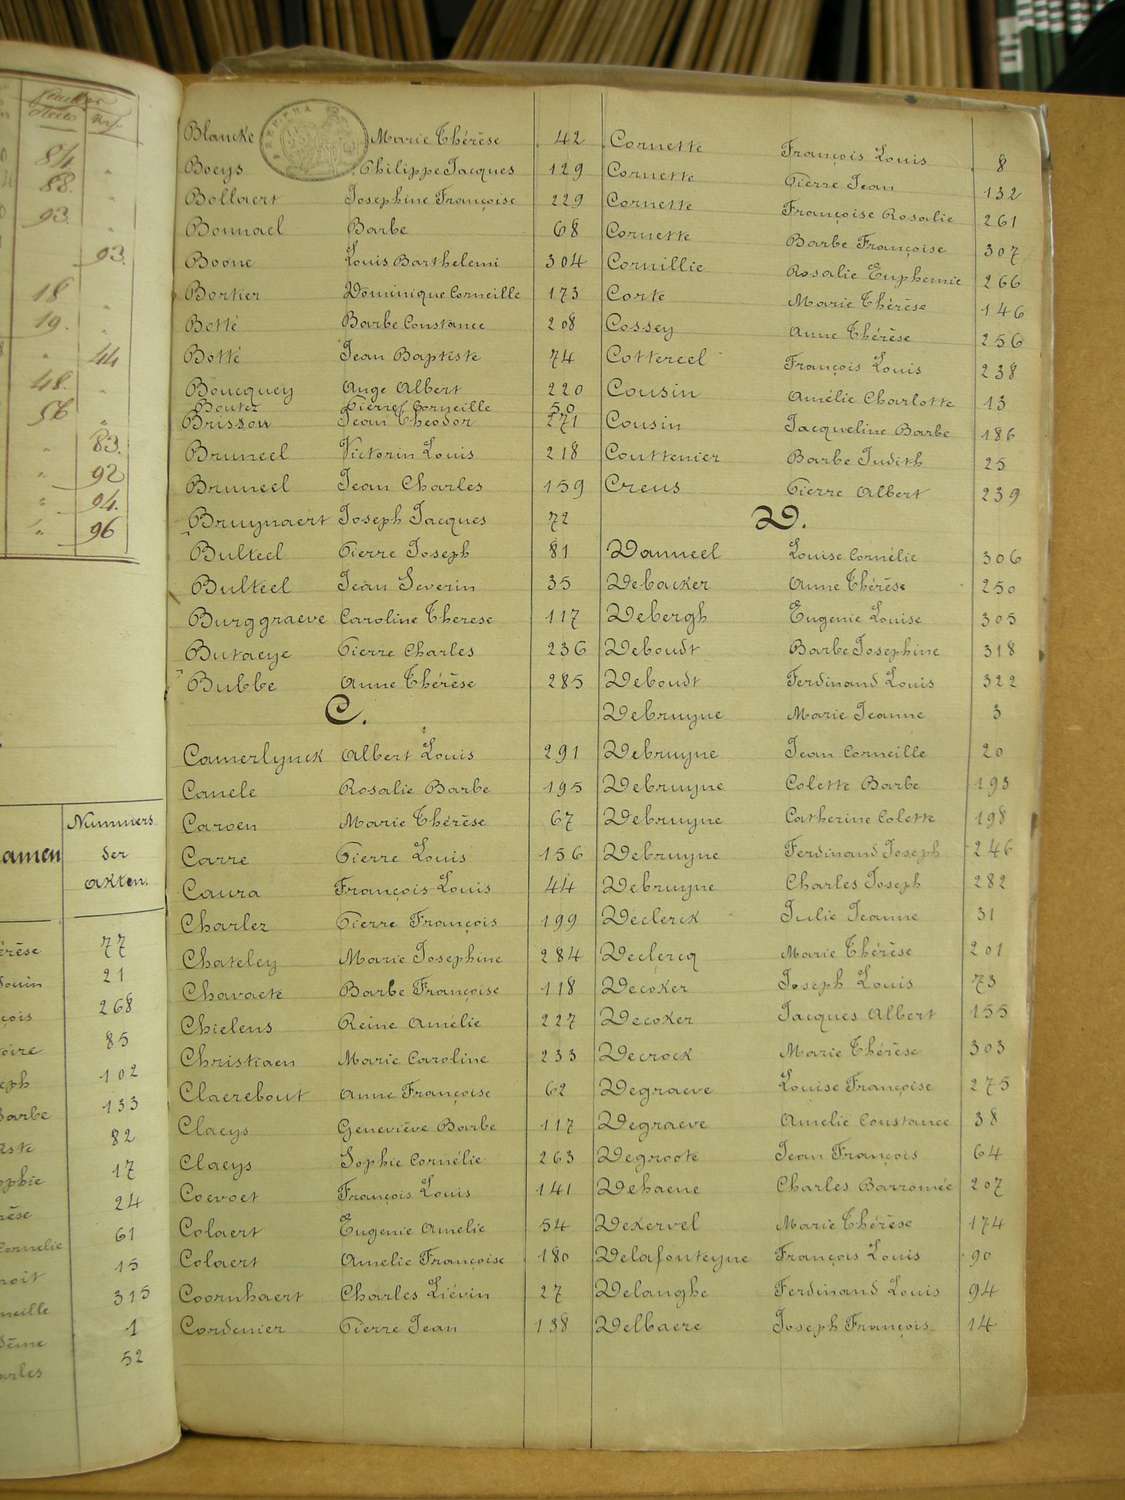 84
88.
93.
93.
18
19.
44
48.
56
83.
92
94.
96
Nummers
amen der
akten.
érèse 77
douin 21
çois 268
oire 85
eph 102
Barbe 133
iste 82
ophie 17
rèse 24
Cornelie 61
noit 15
neille 315
1
arles 52
Blancke Marie Thérèse 42
Boeys Philippe Jacques 129
Bollaert Josephine Françoise 229
Bonnael Barbe 68
Boone Louis Barthelemi 304
Borker Dominique Corneille 173
Botté Barbe Constance 208
Botté Jean Baptiste 74
Boucquey Ange Albert 220
Boutez Pierre Corneille 50
Brissow Jean Theodor 271
Bruneel Victorin Louis 218
Bruneel Jean Charles 159
Bruynaert Joseph Jacques 72
Bulteel Pierre Joseph 81
Bulteel Jean Severin 35
Burggraeve Caroline Therese 117
Butaeye Pierre Charles 236
Bubbe Anne Thérèse 285
C.
Camerlynck Albert Louis 291
Canele Rosalie Barbe 195
Caroen Marie Thérèse 67
Carre Pierre Louis 156
Caura François Louis 44
Charlez Pierre François 199
Chateley Marie Josephine 284
Chavaete Barbe Françoise 118
Chielens Reine Amélie 227
Christiaen Marie Caroline 233
Claerebout Anne Françoise 62
Claeys Geneviève Barbe 117
Claeys Sophie Cornélie 263
Coevoet François Louis 141
Colaert Eugenie Amelie 54
Colaert Amelie Françoise 180
Coornhaert Charles Liévin 27
Cordenier Pierre Jean 138
Cornette François Louis 8
Cornette Pierre Jean 132
Cornette Françoise Rosalie 261
Cornette Barbe Françoise 307
Cornillie Rosalie Euphemie 266
Corte Marie Thérèse 146
Cossey Anne Thérèse 256
Cottereel François Louis 238
Cousin Amélie Charlotte 13
Cousin Jacqueline Barbe 186
Couttenier Barbe Judith 25
Creus Pierre Albert 239
D.
Danneel Louise Cornélie 306
Debacker Anne Thérèse 250
Debergh Eugenie Louise 305
Deboudt Barbe Josephine 318
Deboudt Ferdinand Louis 322
Debruyne Marie Jeanne 3
Debruyne Jean Corneille 20
Debruyne Colette Barbe 193
Debruyne Catherine Colette 198
Debruyne Ferdinand Joseph 246
Debruyne Charles Joseph 282
Declerck Julie Jeanne 31
Declercq Marie Thérèse 201
Decoker Joseph Louis 73
Decoker Jacques Albert 155
Decrock Marie Thérèse 303
Degraeve Louise Françoise 275
Degraeve Amelie Constance 38
Degroote Jean François 64
Dehaene Charles Barromée 207
Dekervel Marie Thérèse 174
Delafonteyne François Louis 90
Delanghe Ferdinand Louis 94
Delbaere Joseph François 14